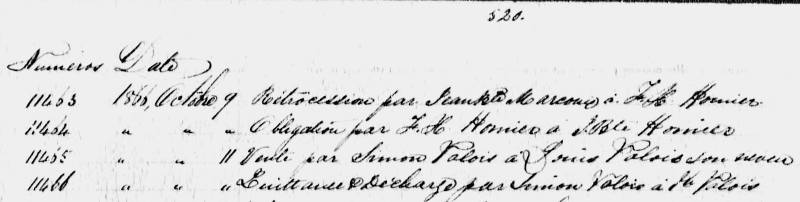 520.
Numeros Date
11463 1866, Octbre 9 Rétrocession par Jean Bte Marcoux à F. H. Homier
11464 " " " Obligation par F. H. Homier à J. Bte Homier
11465 " " 11 Vente par Simon Valois à Louis Valois son neveu
11466 " " " Quittance & Décharge par Simon Valois à Valois